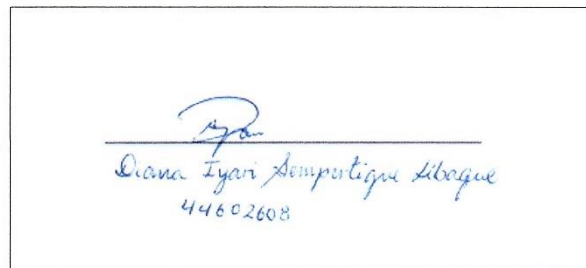 Diana Iyari Sempertigue Libaque
44602608